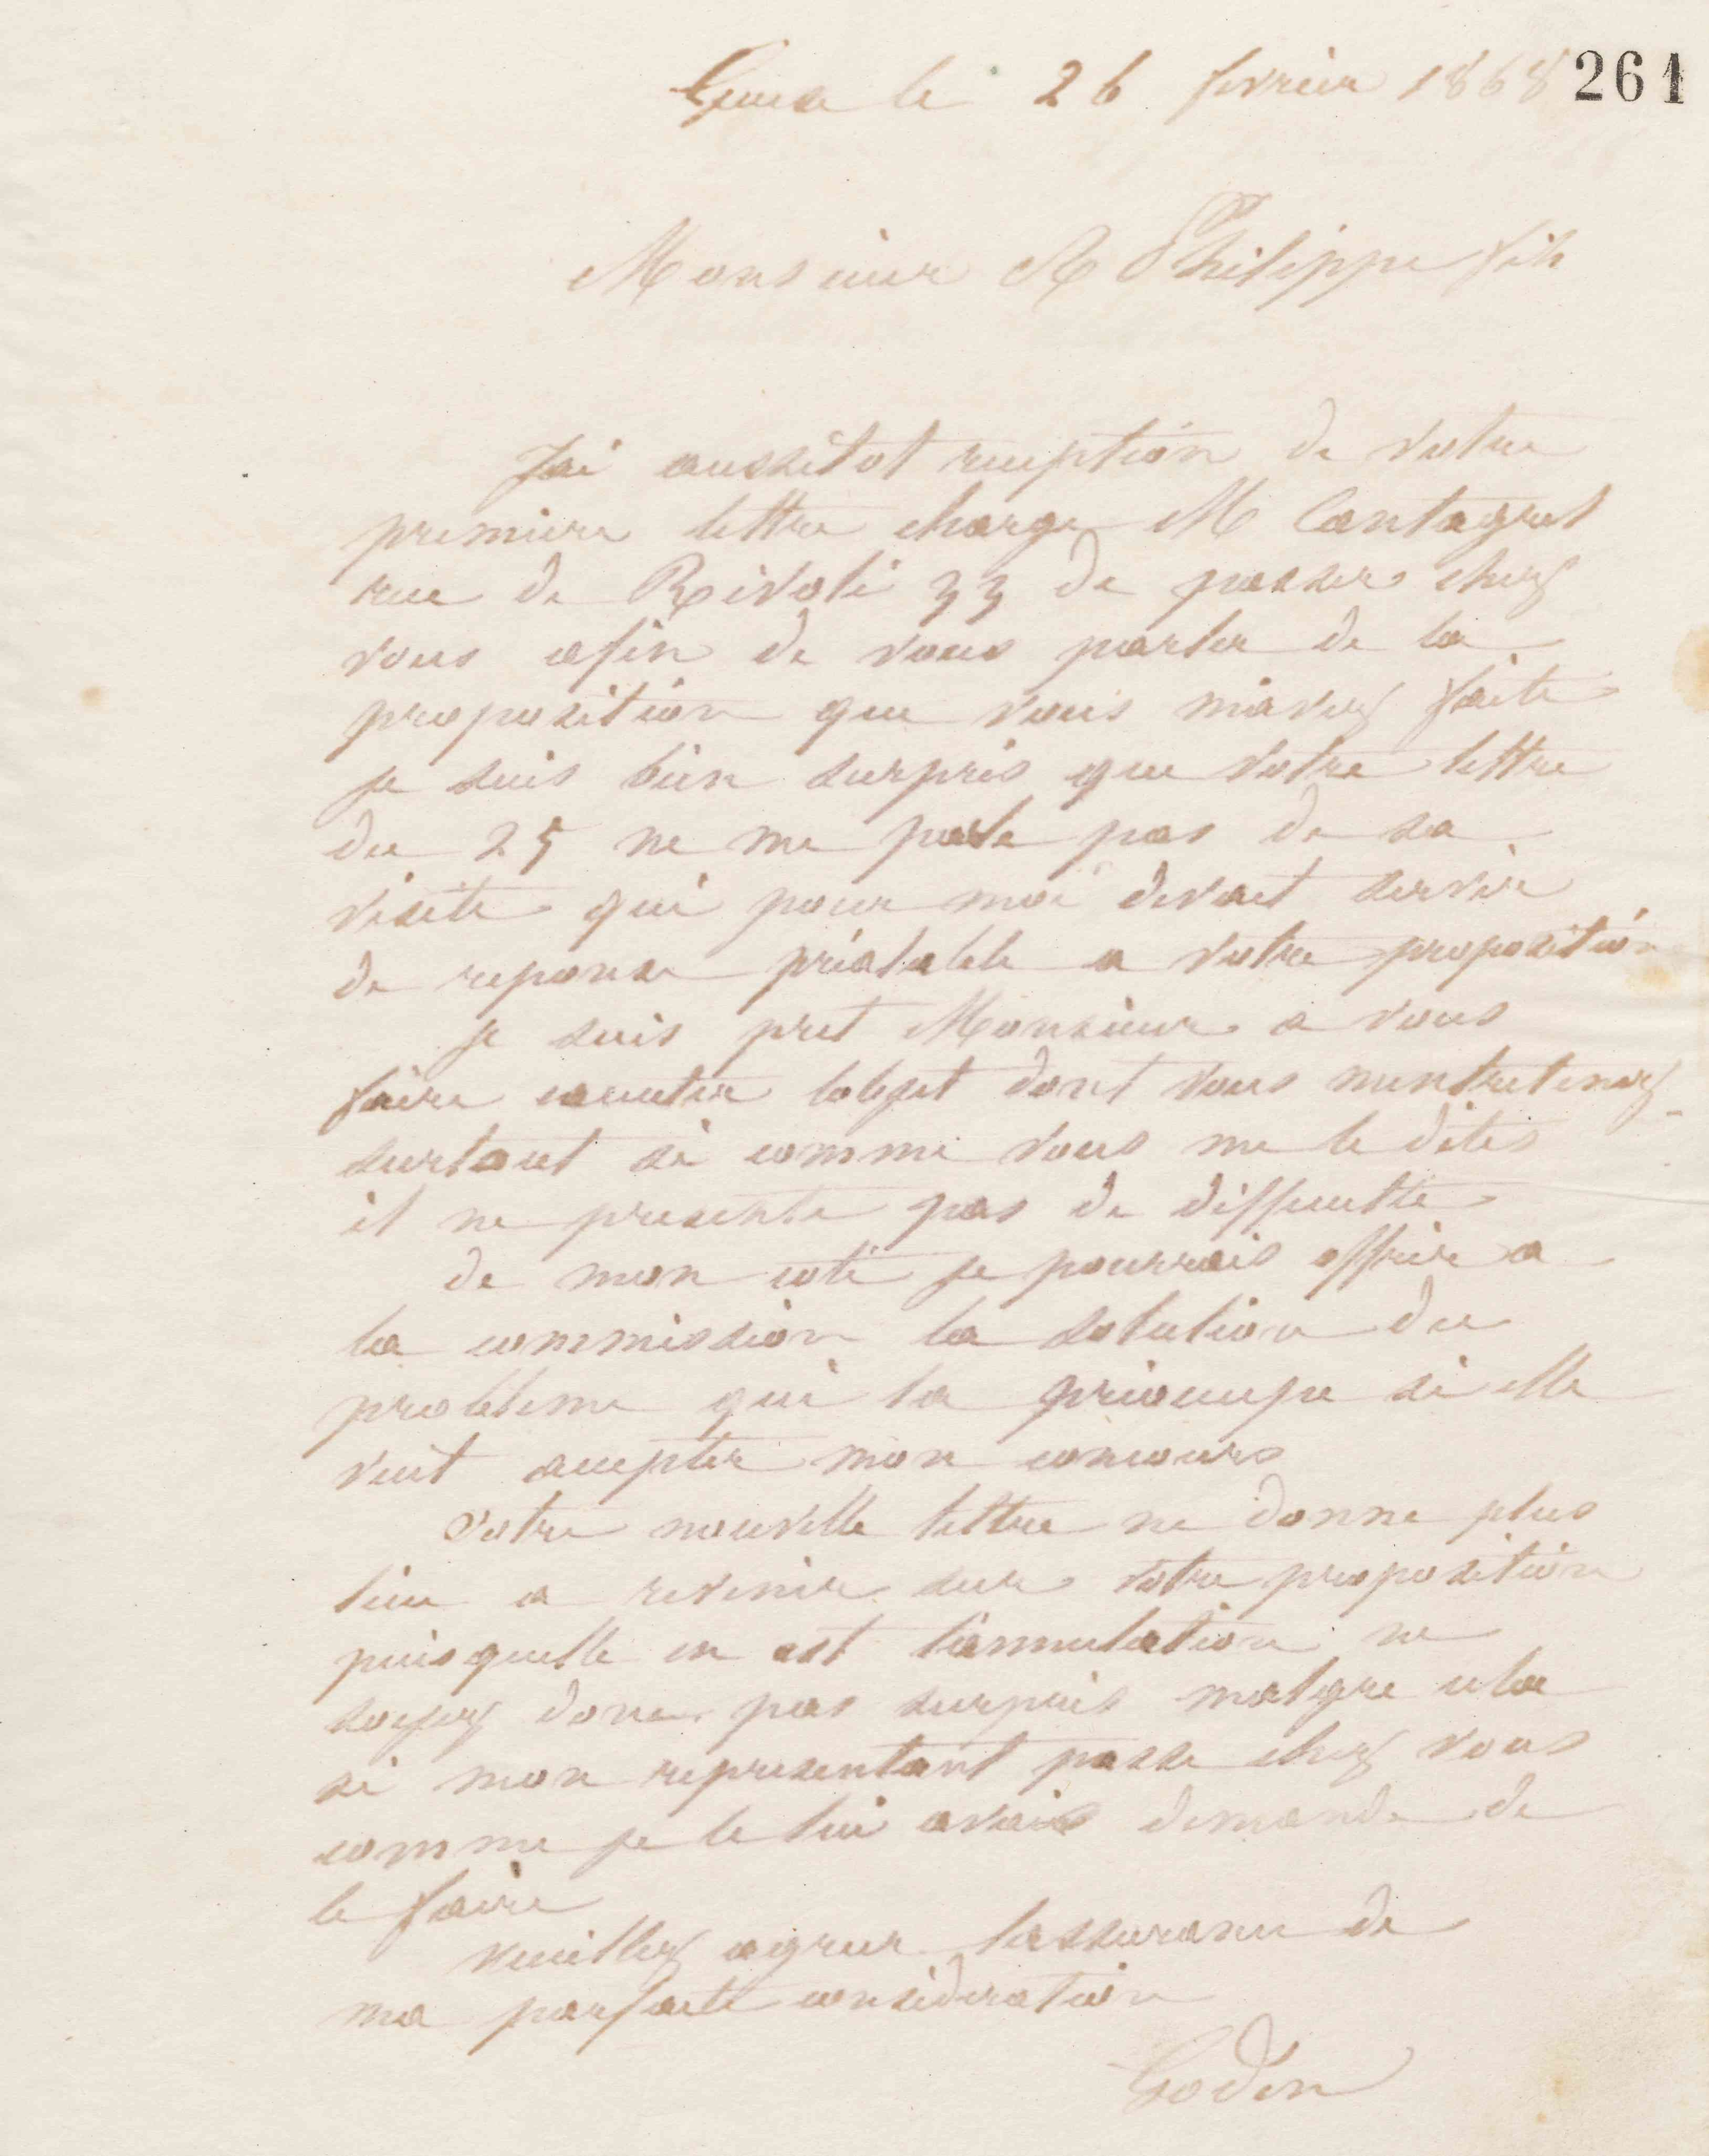 Guise le 26 fevrier 1868 261
Monsieur A Philippe fils
Jai aussitot reception de votre
premiere lettre charge M Cantagrel
rue de Rivoli 33 de passer chez
vous afin de vous parler de la
proposition que vous m'avez faite
je suis bien surpris que votre lettre
du 25 ne me parle pas de sa
visite qui pour moi devait servir
de reponse préalable a votre proposition
je suis pret Monsieur a vous
faire executer lobjet dont vous mentretenez
surtout si comme vous me le dites
il ne presente pas de difficulté
de mon coté je pourrais offrir a
la commission la solution du
probleme qui la préoccupe si elle
veut accepter mon concours
Votre nouvelle lettre ne donne plus
lieu a revenir sur votre proposition
puisquelle en est l'annulation ne
soyez donc pas surpris malgre cela
si mon representant passe chez vous
comme je le lui avais demande de
le faire
veuillez agreer lassurance de
ma parfaite consideration
Godin